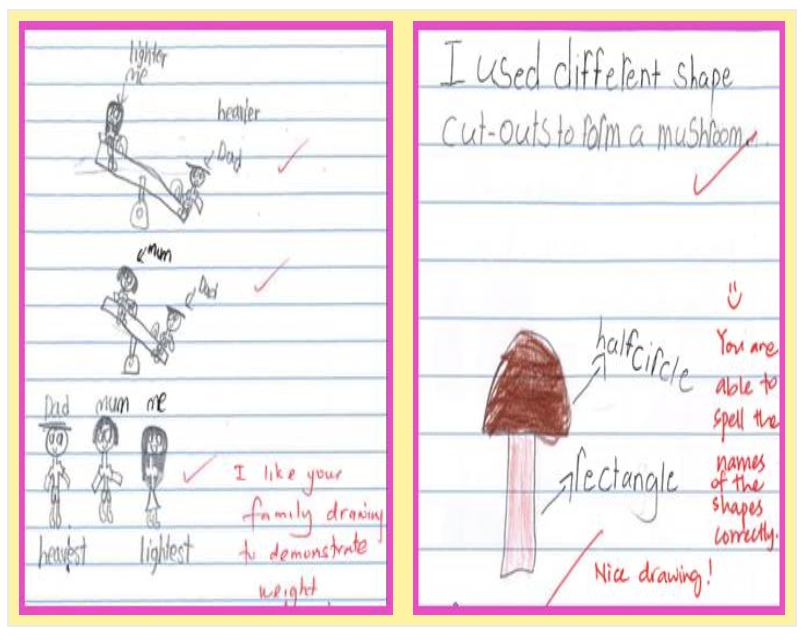 lighter
me
heavier
Dad
mum
Dad
Dad mum me
heaviest lightest
I like your
family drawing
to demonstrate
weight
I used different shape
cut-outs to form a mushroom.
half circle
rectangle
You are
able to
spell the
names
of the
shapes
correctly.
Nice drawing!